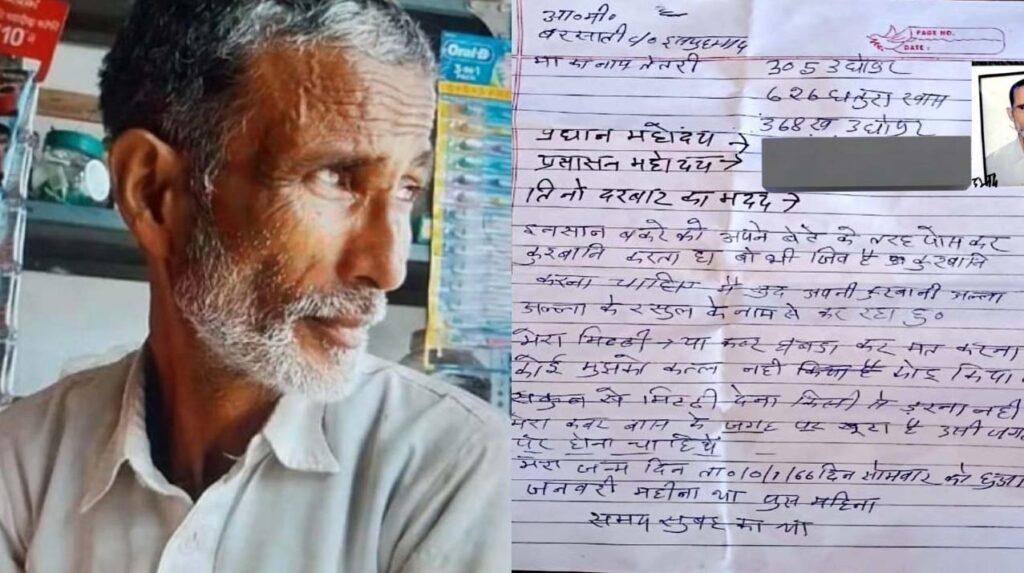 ₹10
Oral-B
3 in 1
PACK
आ०मी०
PAGE NO.
DATE :
मा का नाम तेतरी
305 उधोपुर
368ख उधोपुर
प्रधान महोदय →
प्रसासन महोदय →
तिनो दरबार का मदद →
इनसान बकरे को अपने बेटे की तरह पोस कर
कुरबानि करता है। वो भी जिव है कुरबानि
करना चाहिए मै खुद अपनी कुरबानी अल्ला
अल्ला के रसुल के नाम से कर रहा हु०
मेरा मिटटी या कबर घबडा कर मत करना
कोई मुझको कत्ल नही किया है
सकुन से मिटटी देना किसी से डरना नही
मेरा कबर बास के जगह पर खूटा है उसी जगह
पर होना चाहिये
मेरा जन्म दिन ता० 10/1/66 दिन सोमबार को हुआ
जनवरी महीना था पुस महिना
समय सुबह का था